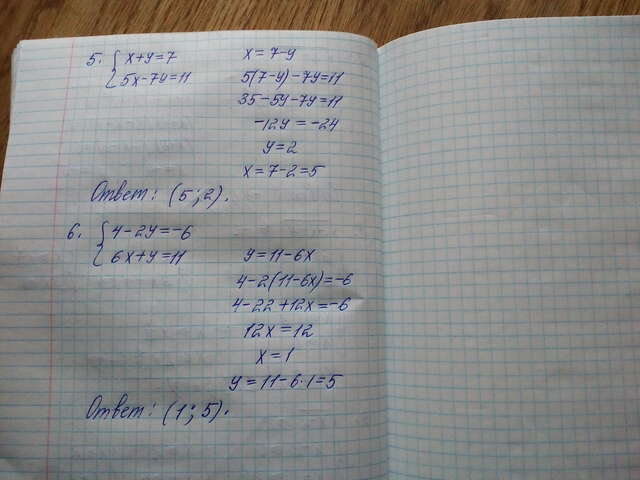 5. { x+y=7 x=7-y
5x-7y=11 5(7-y)-7y=11
35-5y-7y=11
-12y=-24
y=2
x=7-2=5
Ответ: (5;2).
6. { 4-2y=-6
6x+y=11 y=11-6x
4-2(11-6x)=-6
4-22+12x=-6
12x=12
x=1
y=11-6·1=5
Ответ: (1;5).